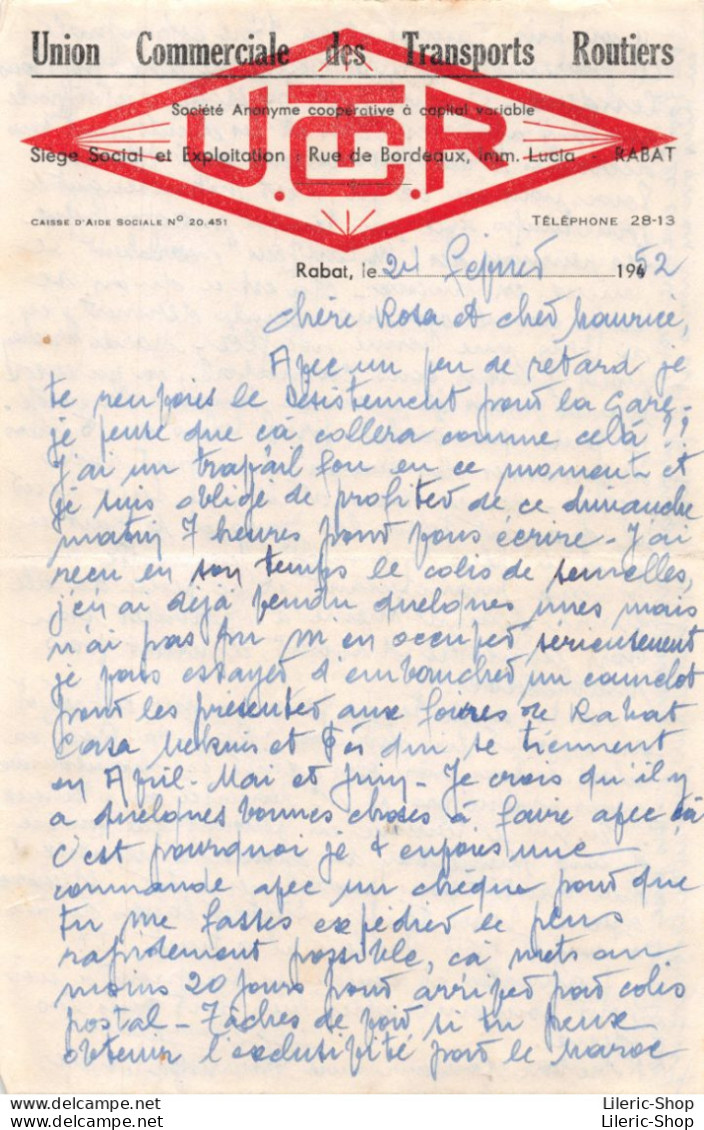 Union Commerciale des Transports Routiers
Société Anonyme coopérative à capital variable
U.C.T.R
Siège Social et Exploitation : Rue de Bordeaux, Imm. Lucia - RABAT
CAISSE D'AIDE SOCIALE Nº 20.451 TÉLÉPHONE 28-13
Rabat, le 24 Février 1952
Chère Rosa et cher Maurice,
Avec un peu de retard je
te renvoies le désistement pour la Gare -
je pense que cà collera comme celà !!
J'ai un travail fou en ce moment et
je suis obligé de profiter de ce dimanche
matin 7 heures pour vous écrire - J'ai
reçu en son temps le colis de semelles,
j'en ai déjà vendu quelques unes mais
n'ai pas pu m'en occuper sérieusement
je vais essayer d'embaucher un camelot
pour les présenter aux foires de Rabat
Casa Meknès et Fès qui se tiennent
en Avril - Mai et Juin - Je crois qu'il y
a quelques bonnes choses à faire avec cà
c'est pourquoi je t'envoies une
commande avec un chèque pour que
tu me fasses expédier le plus
rapidement possible, cà mets au
moins 20 jours pour arriver par colis
postal - Tâches de voir si tu peux
obtenir l'exclusivité pour le Maroc
Lileric-Shop
Lileric-Shop